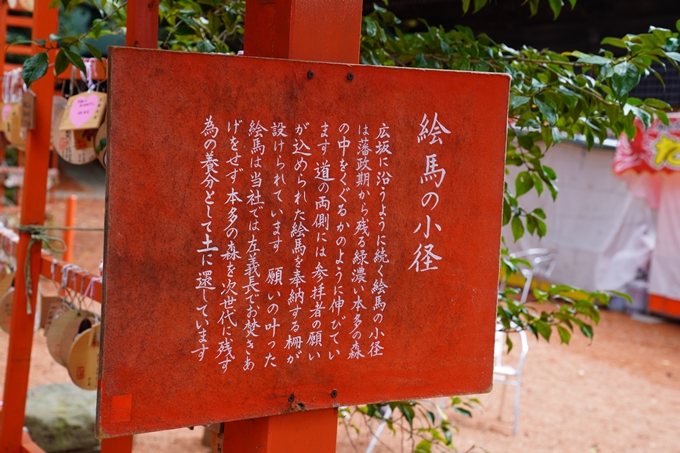 絵馬の小径
広坂に沿うように続く絵馬の小径
は藩政期から残る緑濃い本多の森
の中をくぐるかのように伸びてい
ます 道の両側には参拝者の願い
が込められた絵馬を奉納する柵が
設けられています 願いの叶った
絵馬は当社では左義長でお焚きあ
げをせず本多の森を次世代に残す
為の養分として土に還しています